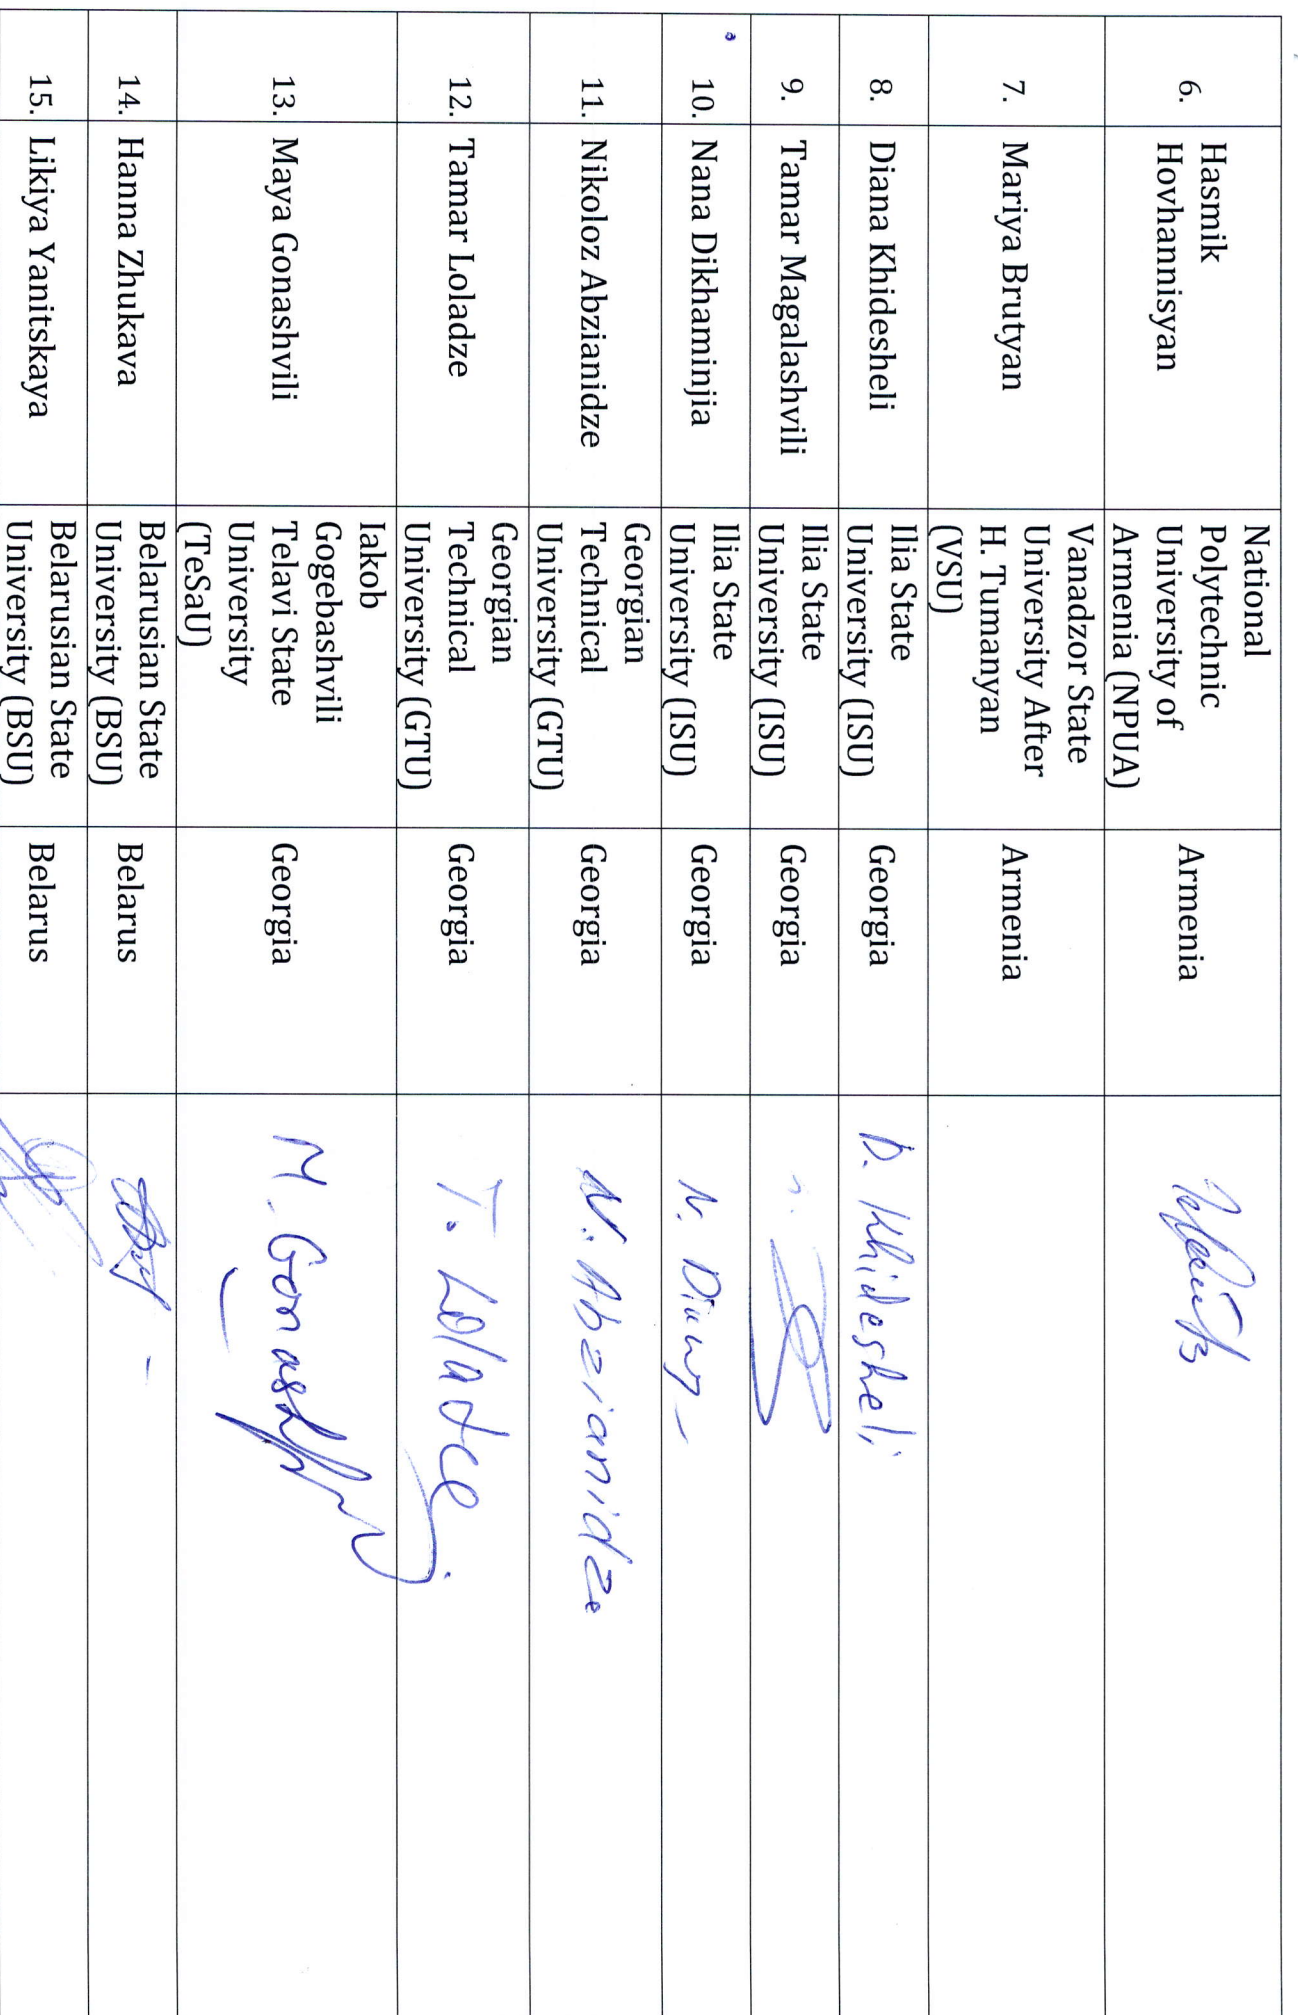 6.
Hasmik
Hovhannisyan
National
Polytechnic
University of
Armenia (NPUA)
Armenia
7.
Mariya Brutyan
Vanadzor State
University After
H. Tumanyan
(VSU)
Armenia
8.
Diana Khidesheli
Ilia State
University (ISU)
Georgia
D. Khidesheli
9.
Tamar Magalashvili
Ilia State
University (ISU)
Georgia
10.
Nana Dikhaminjia
Ilia State
University (ISU)
Georgia
N.
11.
Nikoloz Abzianidze
Georgian
Technical
University (GTU)
Georgia
N. Abzianidze
12.
Tamar Loladze
Georgian
Technical
University (GTU)
Georgia
T. Loladze
13.
Maya Gonashvili
Iakob
Gogebashvili
Telavi State
University
(TeSaU)
Georgia
M.
14.
Hanna Zhukava
Belarusian State
University (BSU)
Belarus
15.
Likiya Yanitskaya
Belarusian State
University (BSU)
Belarus